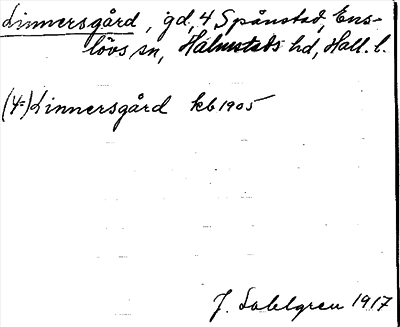 Linnersgård, gd, 4 Spånstad, Ens-
lövs sn, Halmstads hd, Hall. l.
(4=) Linnersgård kb 1905
J. Sahlgren 1917